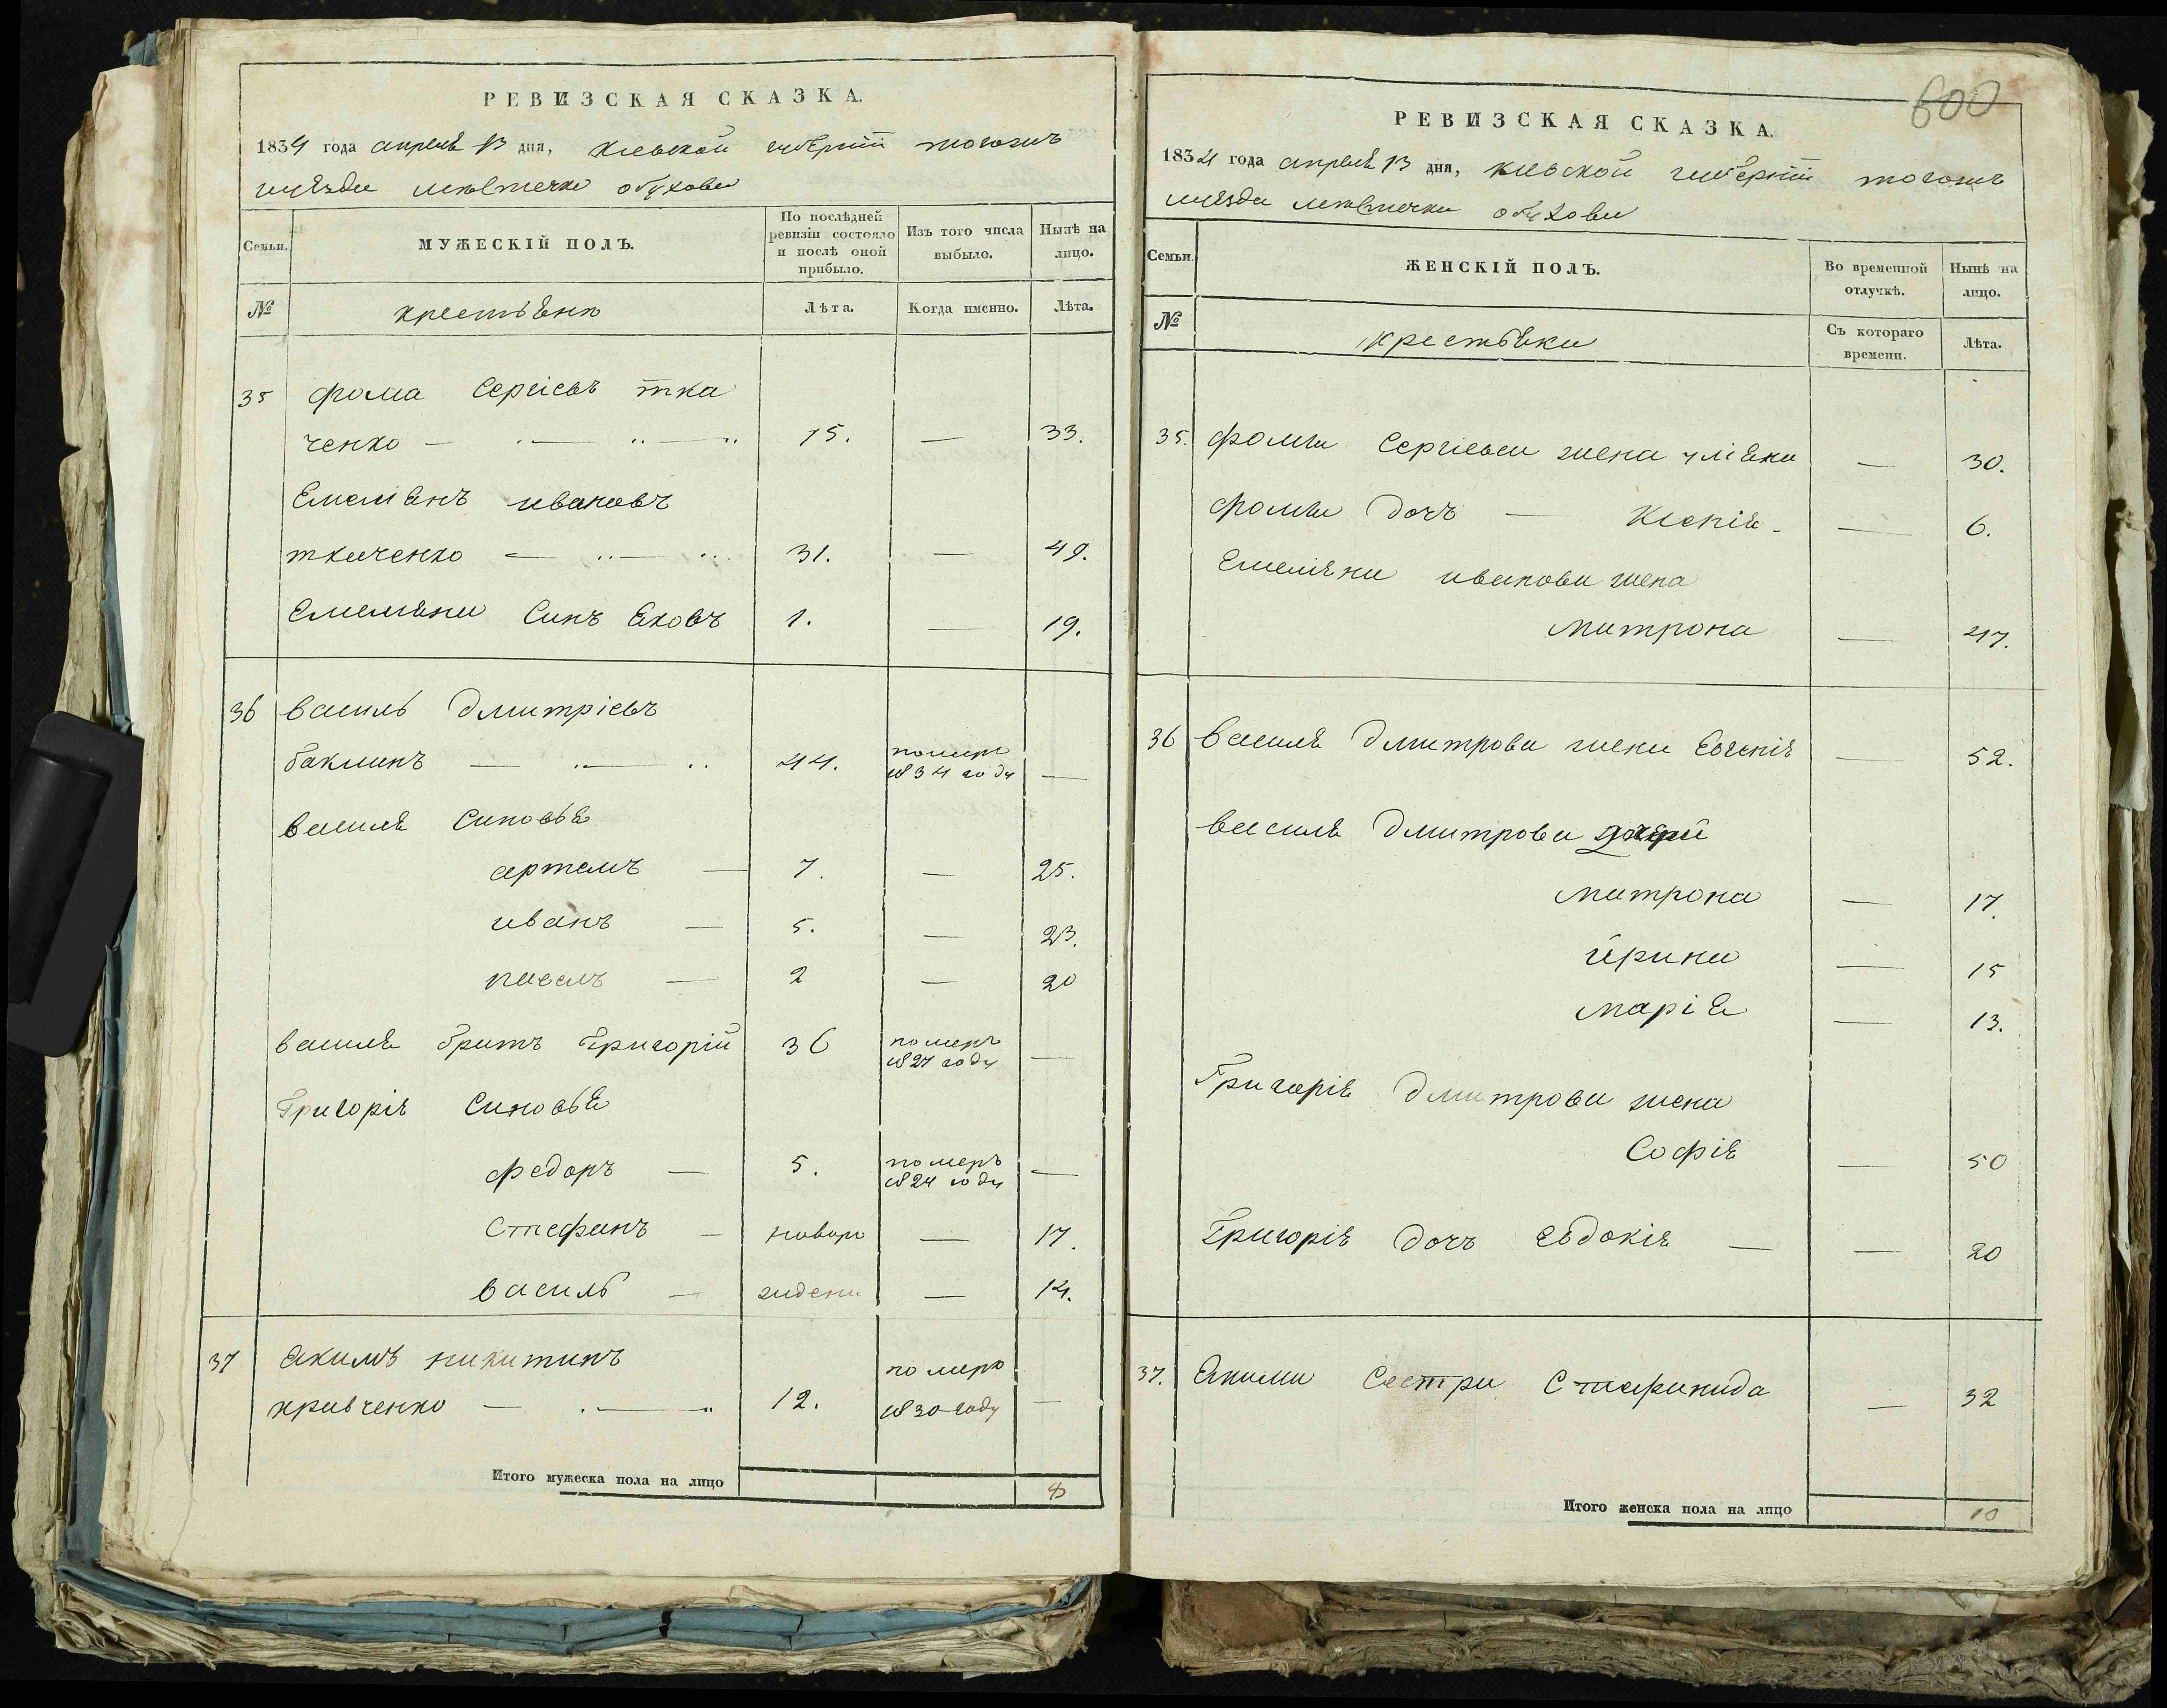 РЕВИЗСКАЯ СКАЗКА.
1834 года апреля 13 дня, киевской губернiи тогожъ
уѣзда местечка обухова
Семьи.
МУЖЕСКІЙ ПОЛЪ.
По послѣдней ревизіи состояло и послѣ оной прибыло.
Изъ того числа выбыло.
Нынѣ на лицо.
№
крестьянъ
Лѣта.
Когда именно.
Лѣта.
35 фома Сергiевъ тка
ченко — 15. — 33.
Емелiянъ ивановъ
ткаченко — 31. — 49.
Емеляна Синъ Яковъ 1. — 19.
36 василь Дмитрiевъ
бакланъ — 44. померъ 1834 году —
василя Синовья
артемъ — 7. — 25.
иванъ — 5. — 23.
павелъ — 2 — 20
василя братъ Григорій 36 померъ 1827 году —
Григорiя Синовья
федоръ — 5. померъ 1824 году —
Стефанъ — новоро — 17.
василь — ждени — 14.
37 Якимъ никитинъ
кривченко — 12. померъ 1830 году —
Итого мужеска пола на лицо 8
600
РЕВИЗСКАЯ СКАЗКА.
1834 года апреля 13 дня, киевской губернiи тогожъ
уѣзда местечка обухова
Семьи.
ЖЕНСКІЙ ПОЛЪ.
Во временной отлучкѣ.
Нынѣ на лицо.
№
крестьянки
Съ котораго времени.
Лѣта.
35. фомы Сергiева жена улiяна — 30.
фомы дочъ — Ксенiя — 6.
Емеляна иванова жена
матрона — 47.
36 василя Дмитрова жена Евгенiя — 52.
василя Дмитрова дочери
матрона — 17.
ирина — 15
марiя — 13.
Григорiя Дмитрова жена
Софiя — 50
Григорiя дочъ евдокiя — — 20
37. Якима Сестра Стефанида — 32
Итого женска пола на лицо 10